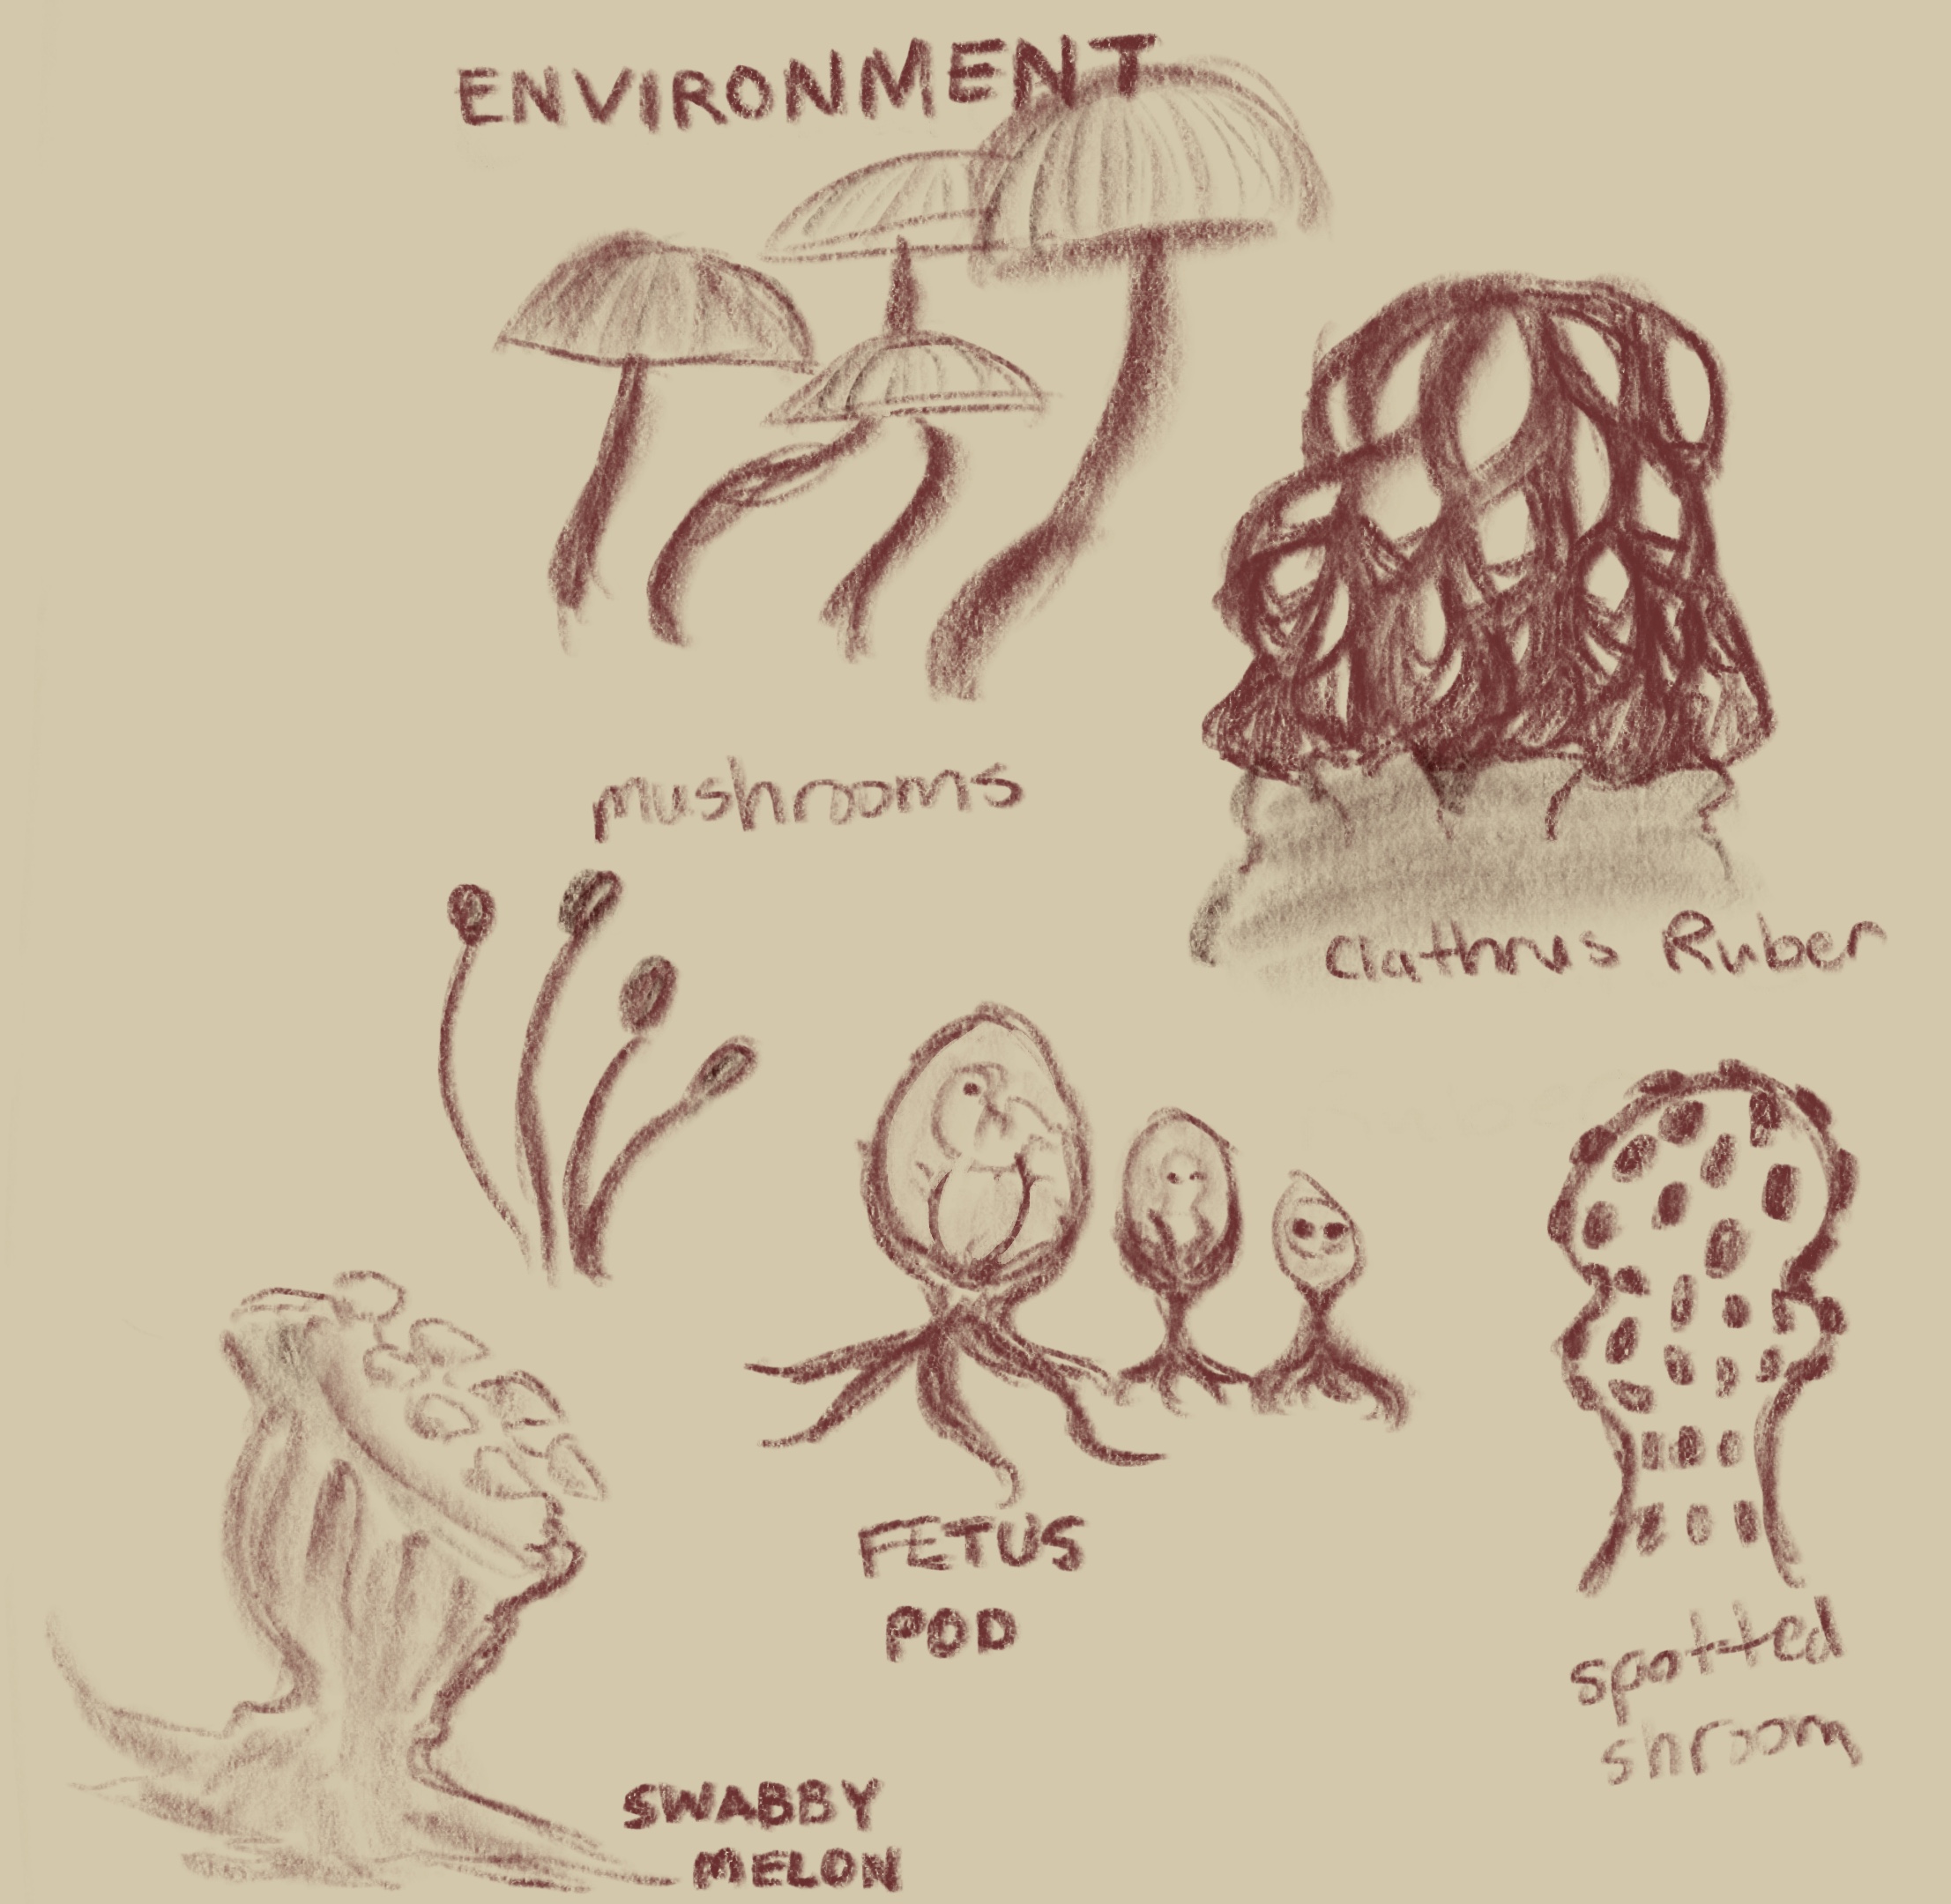 ENVIRONMENT
mushrooms
Clathrus Ruber
FETUS
POD
spotted
shroom
SWABBY
MELON